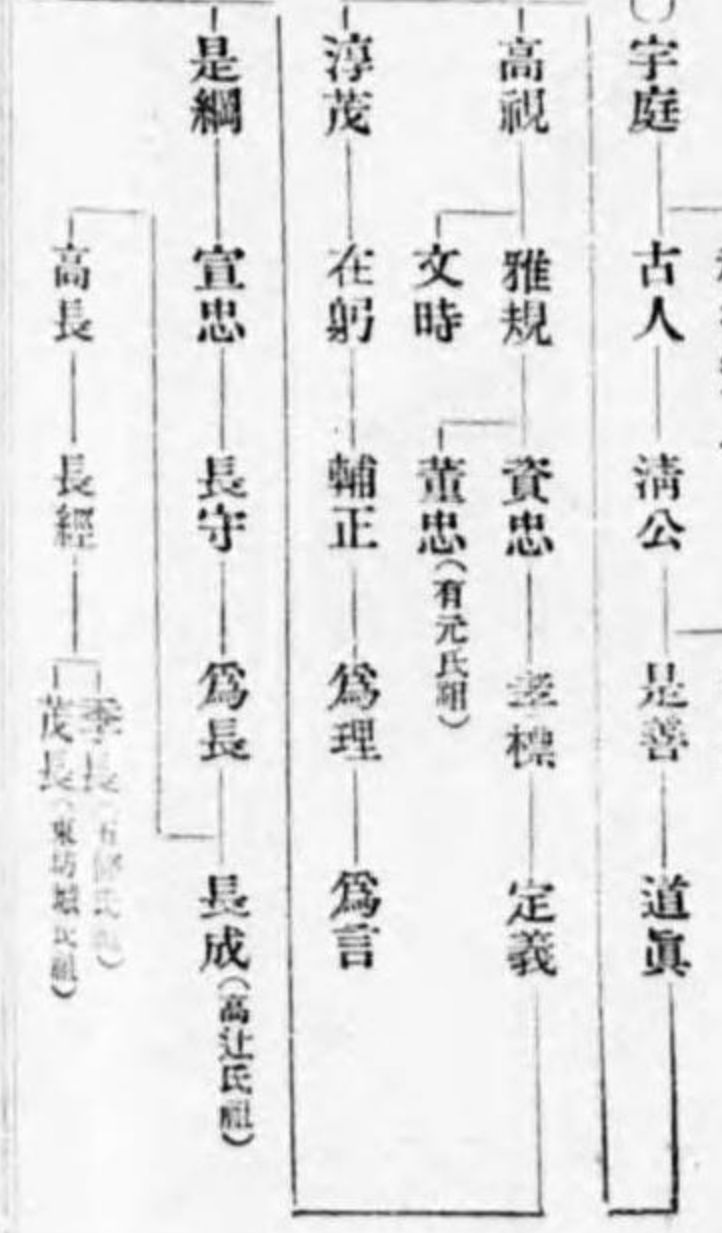 宇庭 古人 清公 是善 道眞
高視 雅規 資忠 孝標 定義
文時 董忠(有元氏祖)
淳茂 在躬 輔正 爲理 爲言
是綱 宣忠 長守 爲長 長成(高辻氏祖)
高長 長經 季長(五條氏祖)
茂長(東坊城氏祖)